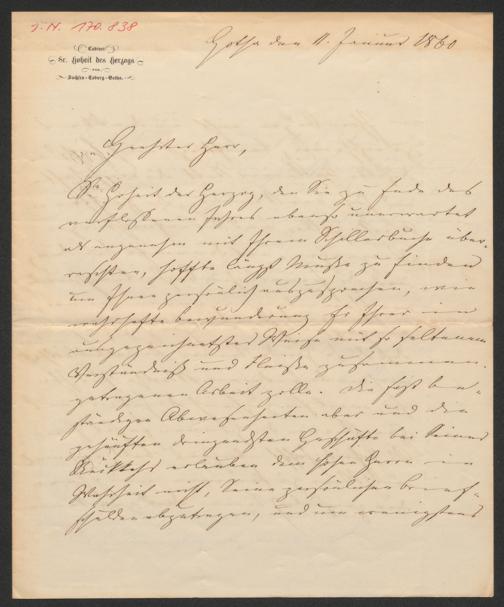 J.N. 170.838
Cabinet
Sr. Hoheit des Herzogs
von
Sachsen-Coburg-Gotha.
Gotha den 11. Januar 1860
Geehrter Herr,
Se. Hoheit der Herzog, den Sie zu Ende des
verflossenen Jahres ebenso unerwartet
als angenehm mit Ihrem Schillerbuche über-
raschten, hoffte längst Muße zu finden
um Ihnen persönlich auszusprechen, wie
wahrhafte Bewunderung Er Ihrer in
ausgezeichnetster Weise mit so seltenem
Verständniß und Fleiße zusammen-
getragenen Arbeit zolle. Die fast be-
ständigen Abwesenheiten aber und die
gehäuften dringendsten Geschäfte bei Seiner
Rückkehr erlauben dem hohen Herrn in
Wahrheit nicht, Seine persönlichen Brief-
schulden abzutragen, und um wenigstens